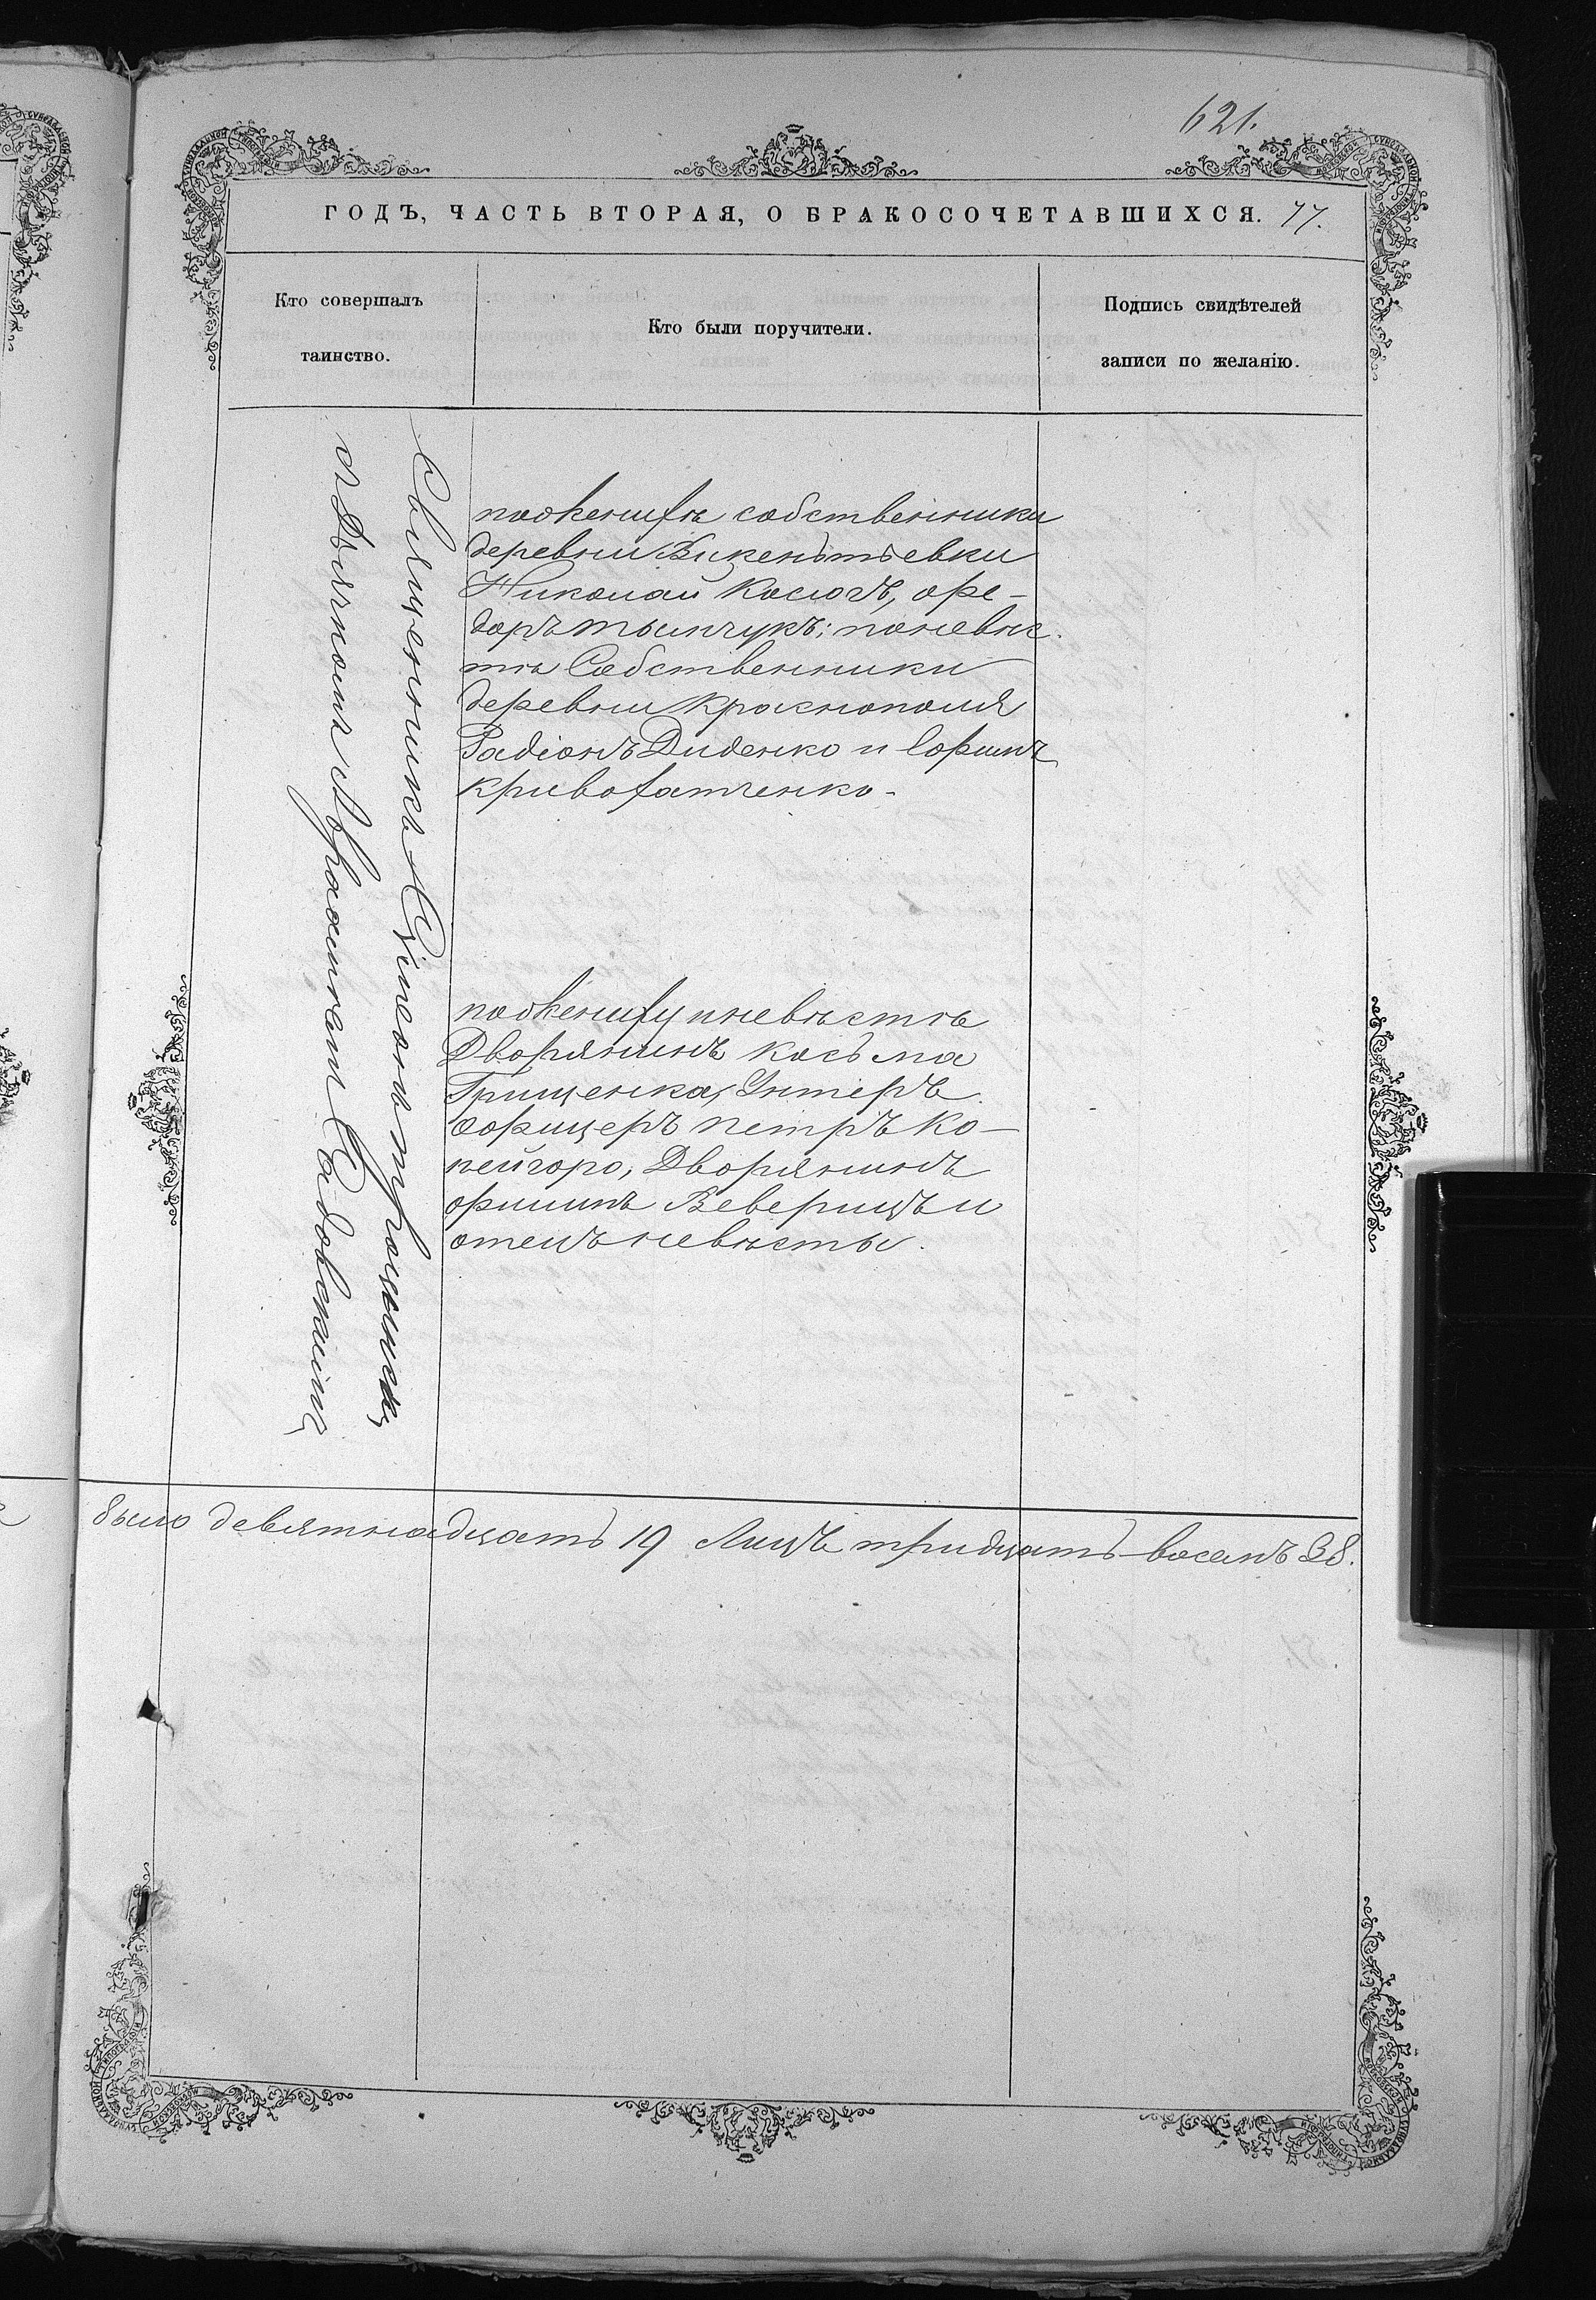 621.
ГОДЪ, ЧАСТЬ ВТОРАЯ, О БРАКОСОЧЕТАВШИХСЯ. 77.
Кто совершалъ
таинство.
Кто были поручители.
Подпись свидѣтелей
записи по желанію.
Священникъ Симеонъ
съ Дьячкомъ Садовскимъ
собственники
деревни Викентьевки
Николай Косюгъ, Фе-
доръ тымчукъ; поневѣс
тѣ Собственники
деревни Краснополя
Радіонъ Диденко и
пожениху иневѣстѣ
Дворянинъ Косьма
Грищенко, Унтеръ
офицеръ петръ Ко-
пейгоро, Дворянинъ
и
отецъ невѣсты.
было девятнадцать 19 Лицъ тридцать восемъ 38.